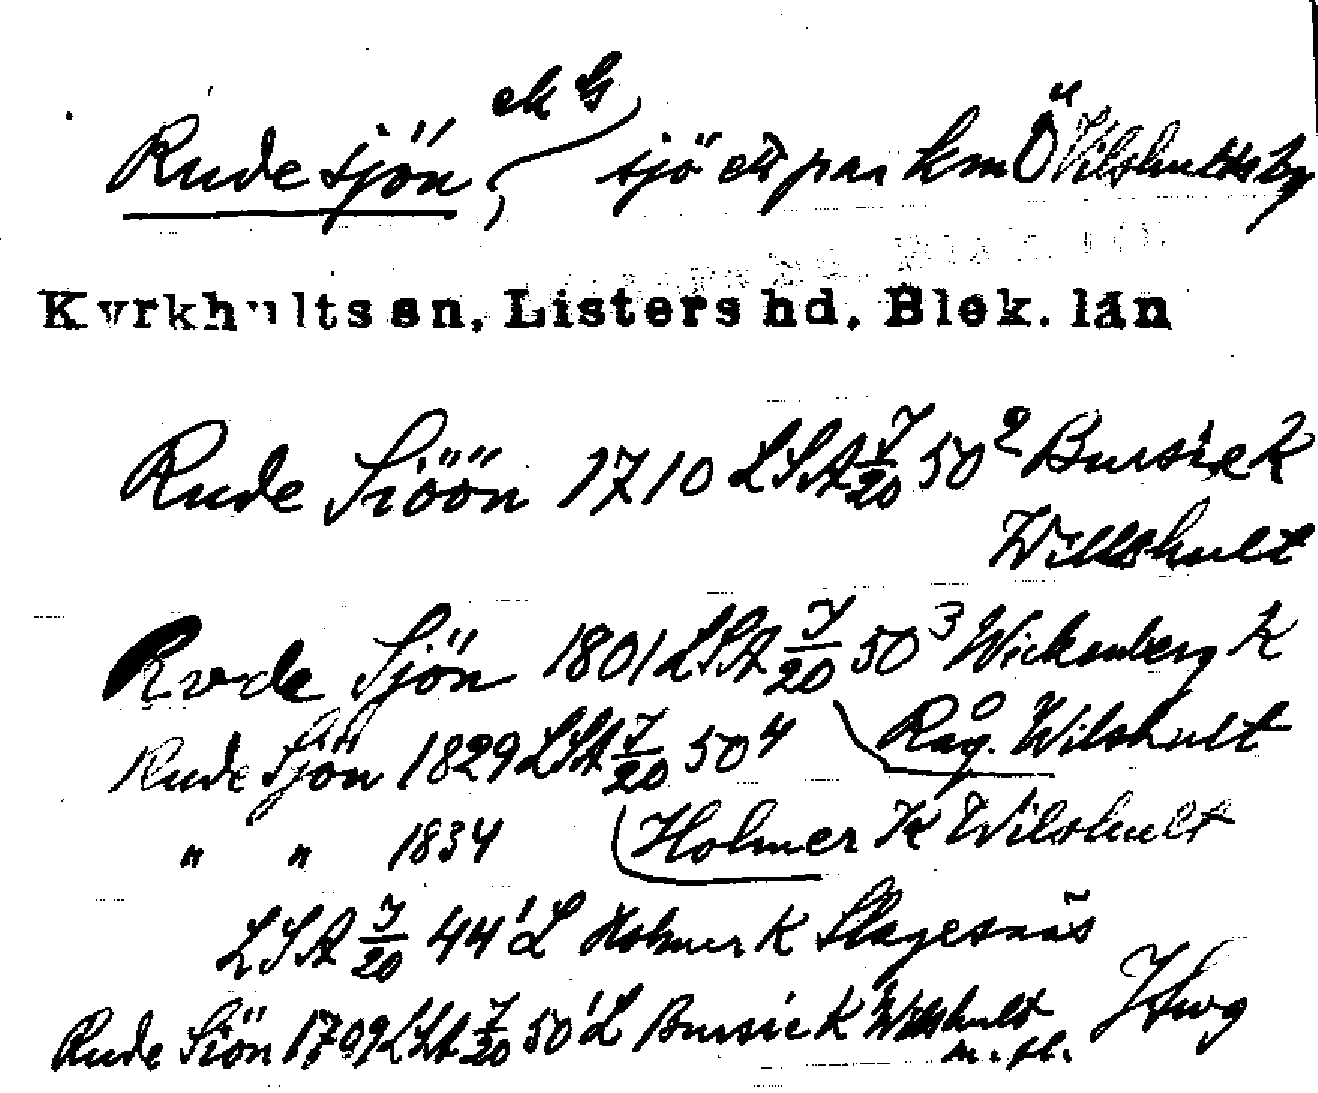 Rudesjön, ek G sjö ek par km Ö Vilshults by
Kyrkhults sn, Listers hd, Blek. län
Rude Siöön 1710 LSA J/20 50² Bursie K
Willshult
Rude Sjön 1801 LSA J/20 50³ Wickenberg K
Råg. Wilshult
Rude Sjön 1829 LSA J/20 50⁴
" " 1834 Holmer K Wilshult
LSA J/20 44¹ L Holmer K Slagesnäs
Rude Siön 1709 LSA J/20 50¹ L Bursie K Willshult
m. fl.